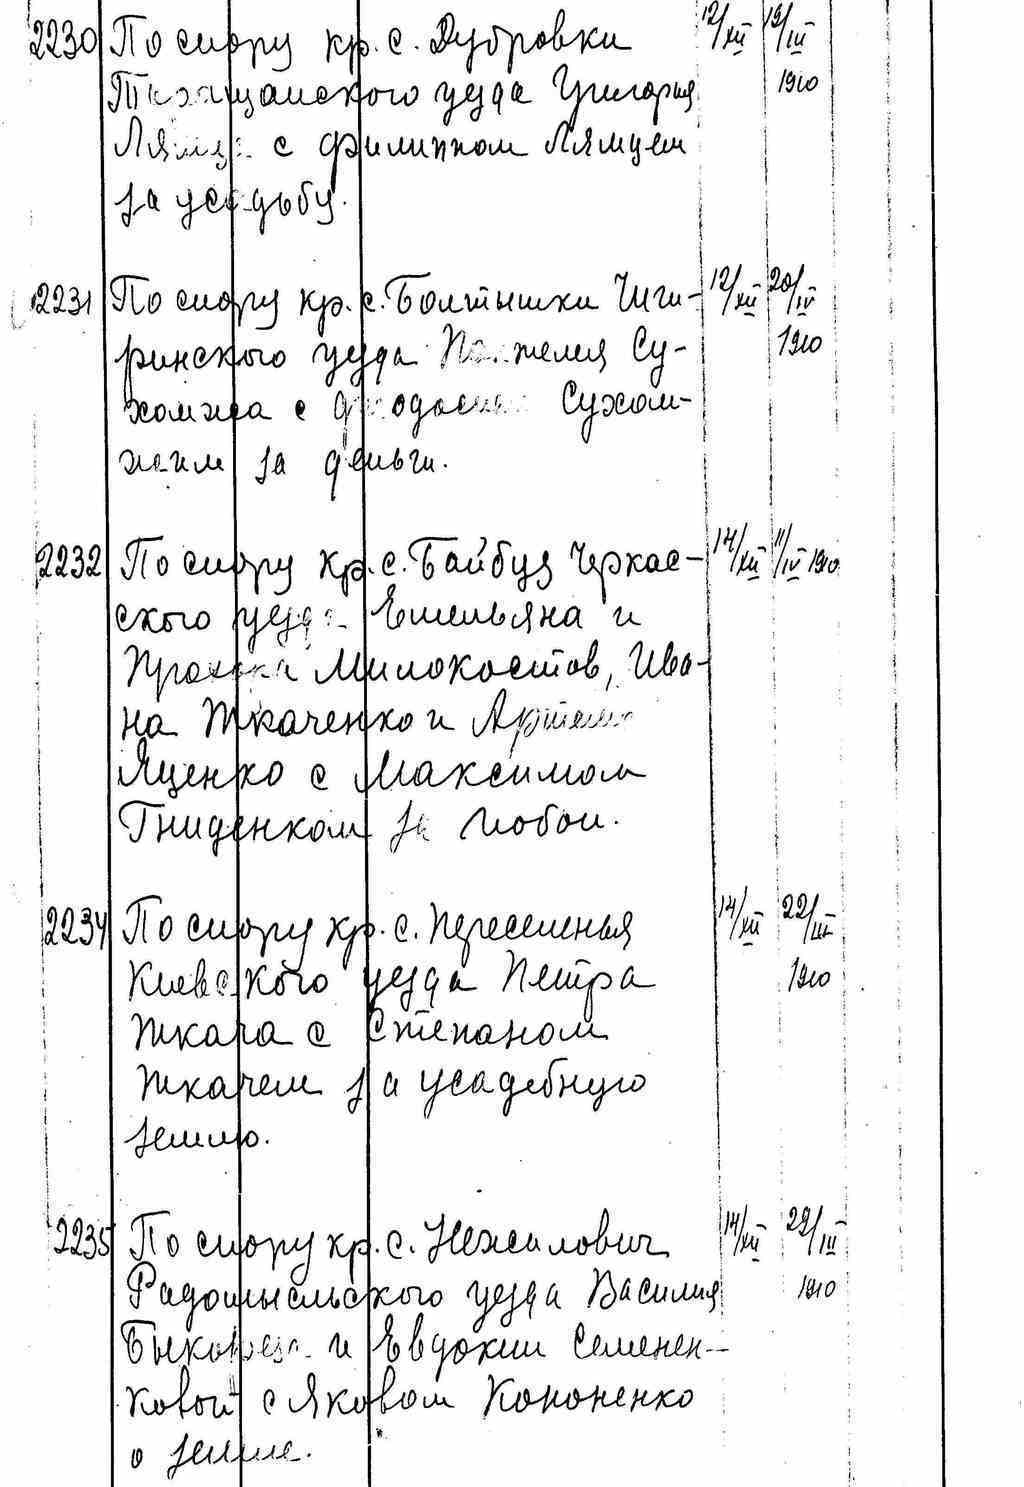 2230 По спору кр. с. Дубровки 12/XII 19/III
Таращанского уезда Григория 1910
с Филиппом Лямцем
за усадьбу.
2231 По спору кр. с. Болтышки Чиги- 12/XII 20/IV
ринского уезда Пантелея Су- 1910
хомяса с Феодосием Сухом-
за деньги.
2232 По спору кр. с. Байбуз Черкас- 14/XII 11/IV 1910
ского уезда Емельяна и
Прокопа Милокостов, Ива-
на Ткаченко и Артема
Яценко с Максимом
Гниденком за побои.
2234 По спору кр. с. Переселенья 14/XII 22/III
Киевского уезда Петра 1910
Ткача с Степаном
Ткачем за усадебную
землю.
2235 По спору кр. с. Нежилович 14/XII 22/III
Радомысльского уезда Василия 1910
и Евдокии Семенен-
ковой с Яковом Кононенко
о земле.